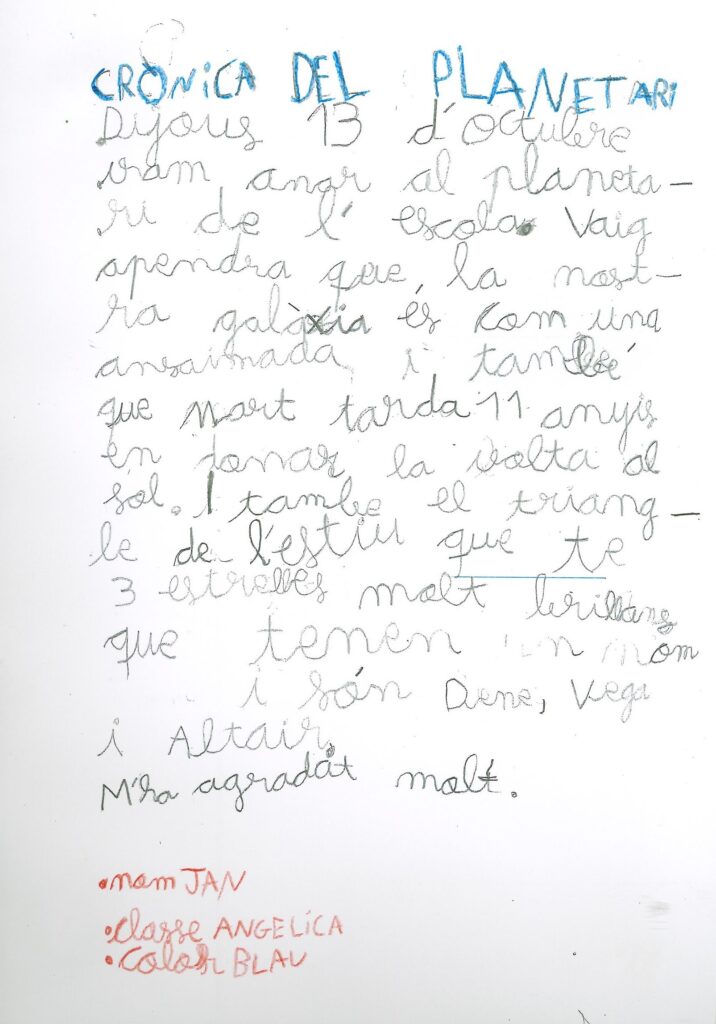 CRÒNiCA DEL PLANETARi
Dijous 13 d'octubre
vam anar al planeta-
ri de l' escola. Vaig
apendra que la nost-
ra galàxia és com una
ansaimada i també
que mart tarda 11 anyis
en donar la volta al
sol. I tambe el triang-
le de l'estiu que te
3 estrelles molt brillans
que tenen un nom
i són Dene, Vega
i Altair.
M'ha agradat molt.
•nom JAN
•classe ANGELiCA
•color BLAU